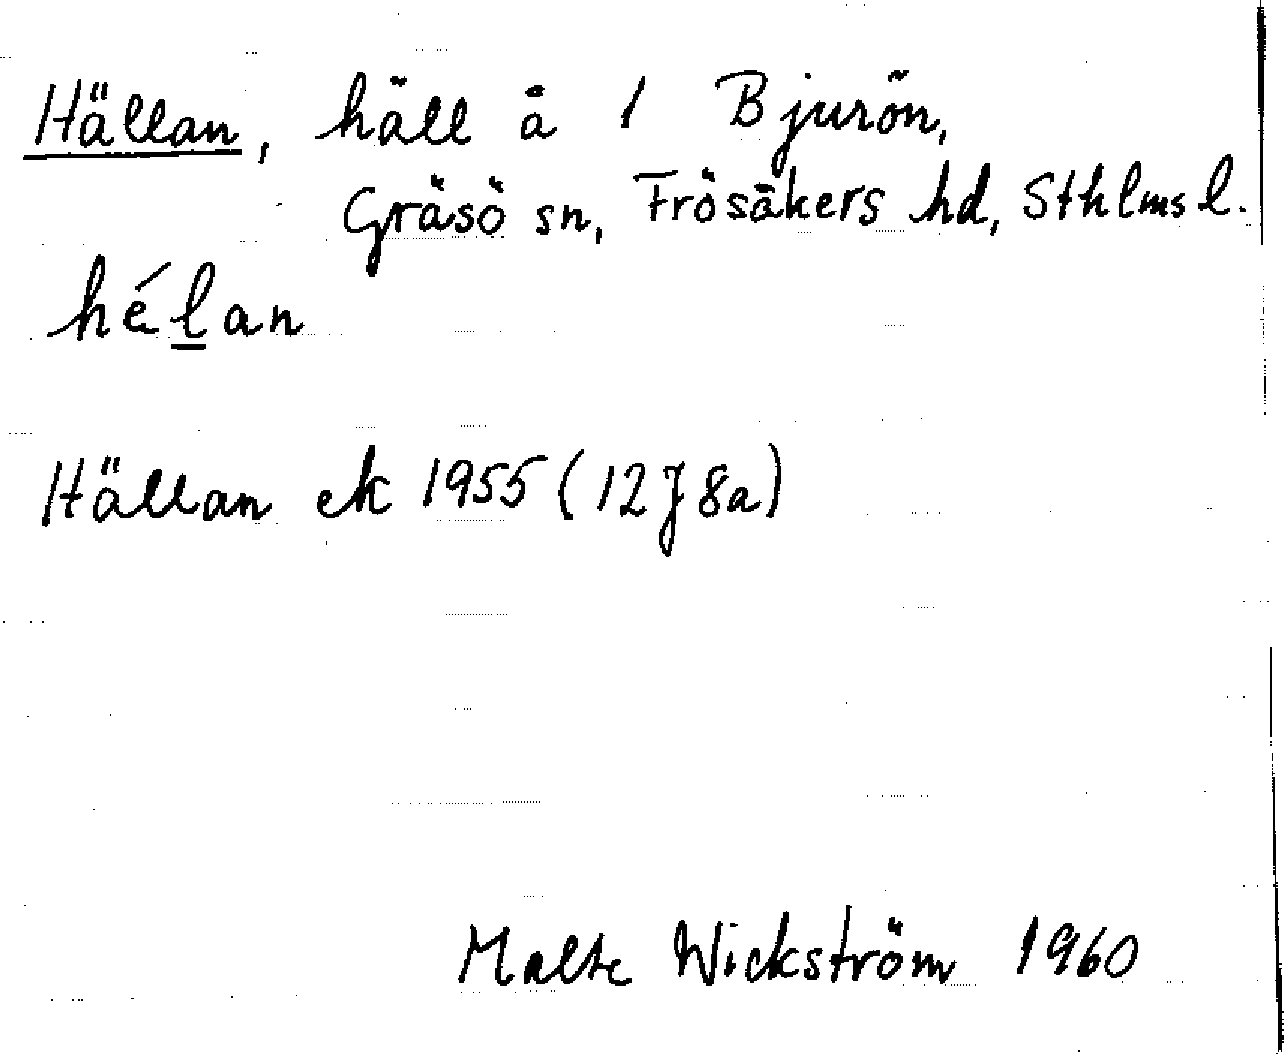 Hällan, häll å 1 Bjurön,
Gräsö sn, Frösåkers hd, Sthlms l.
hélan
Hällan ek 1955 (12J 8a)
Malte Wickström 1960